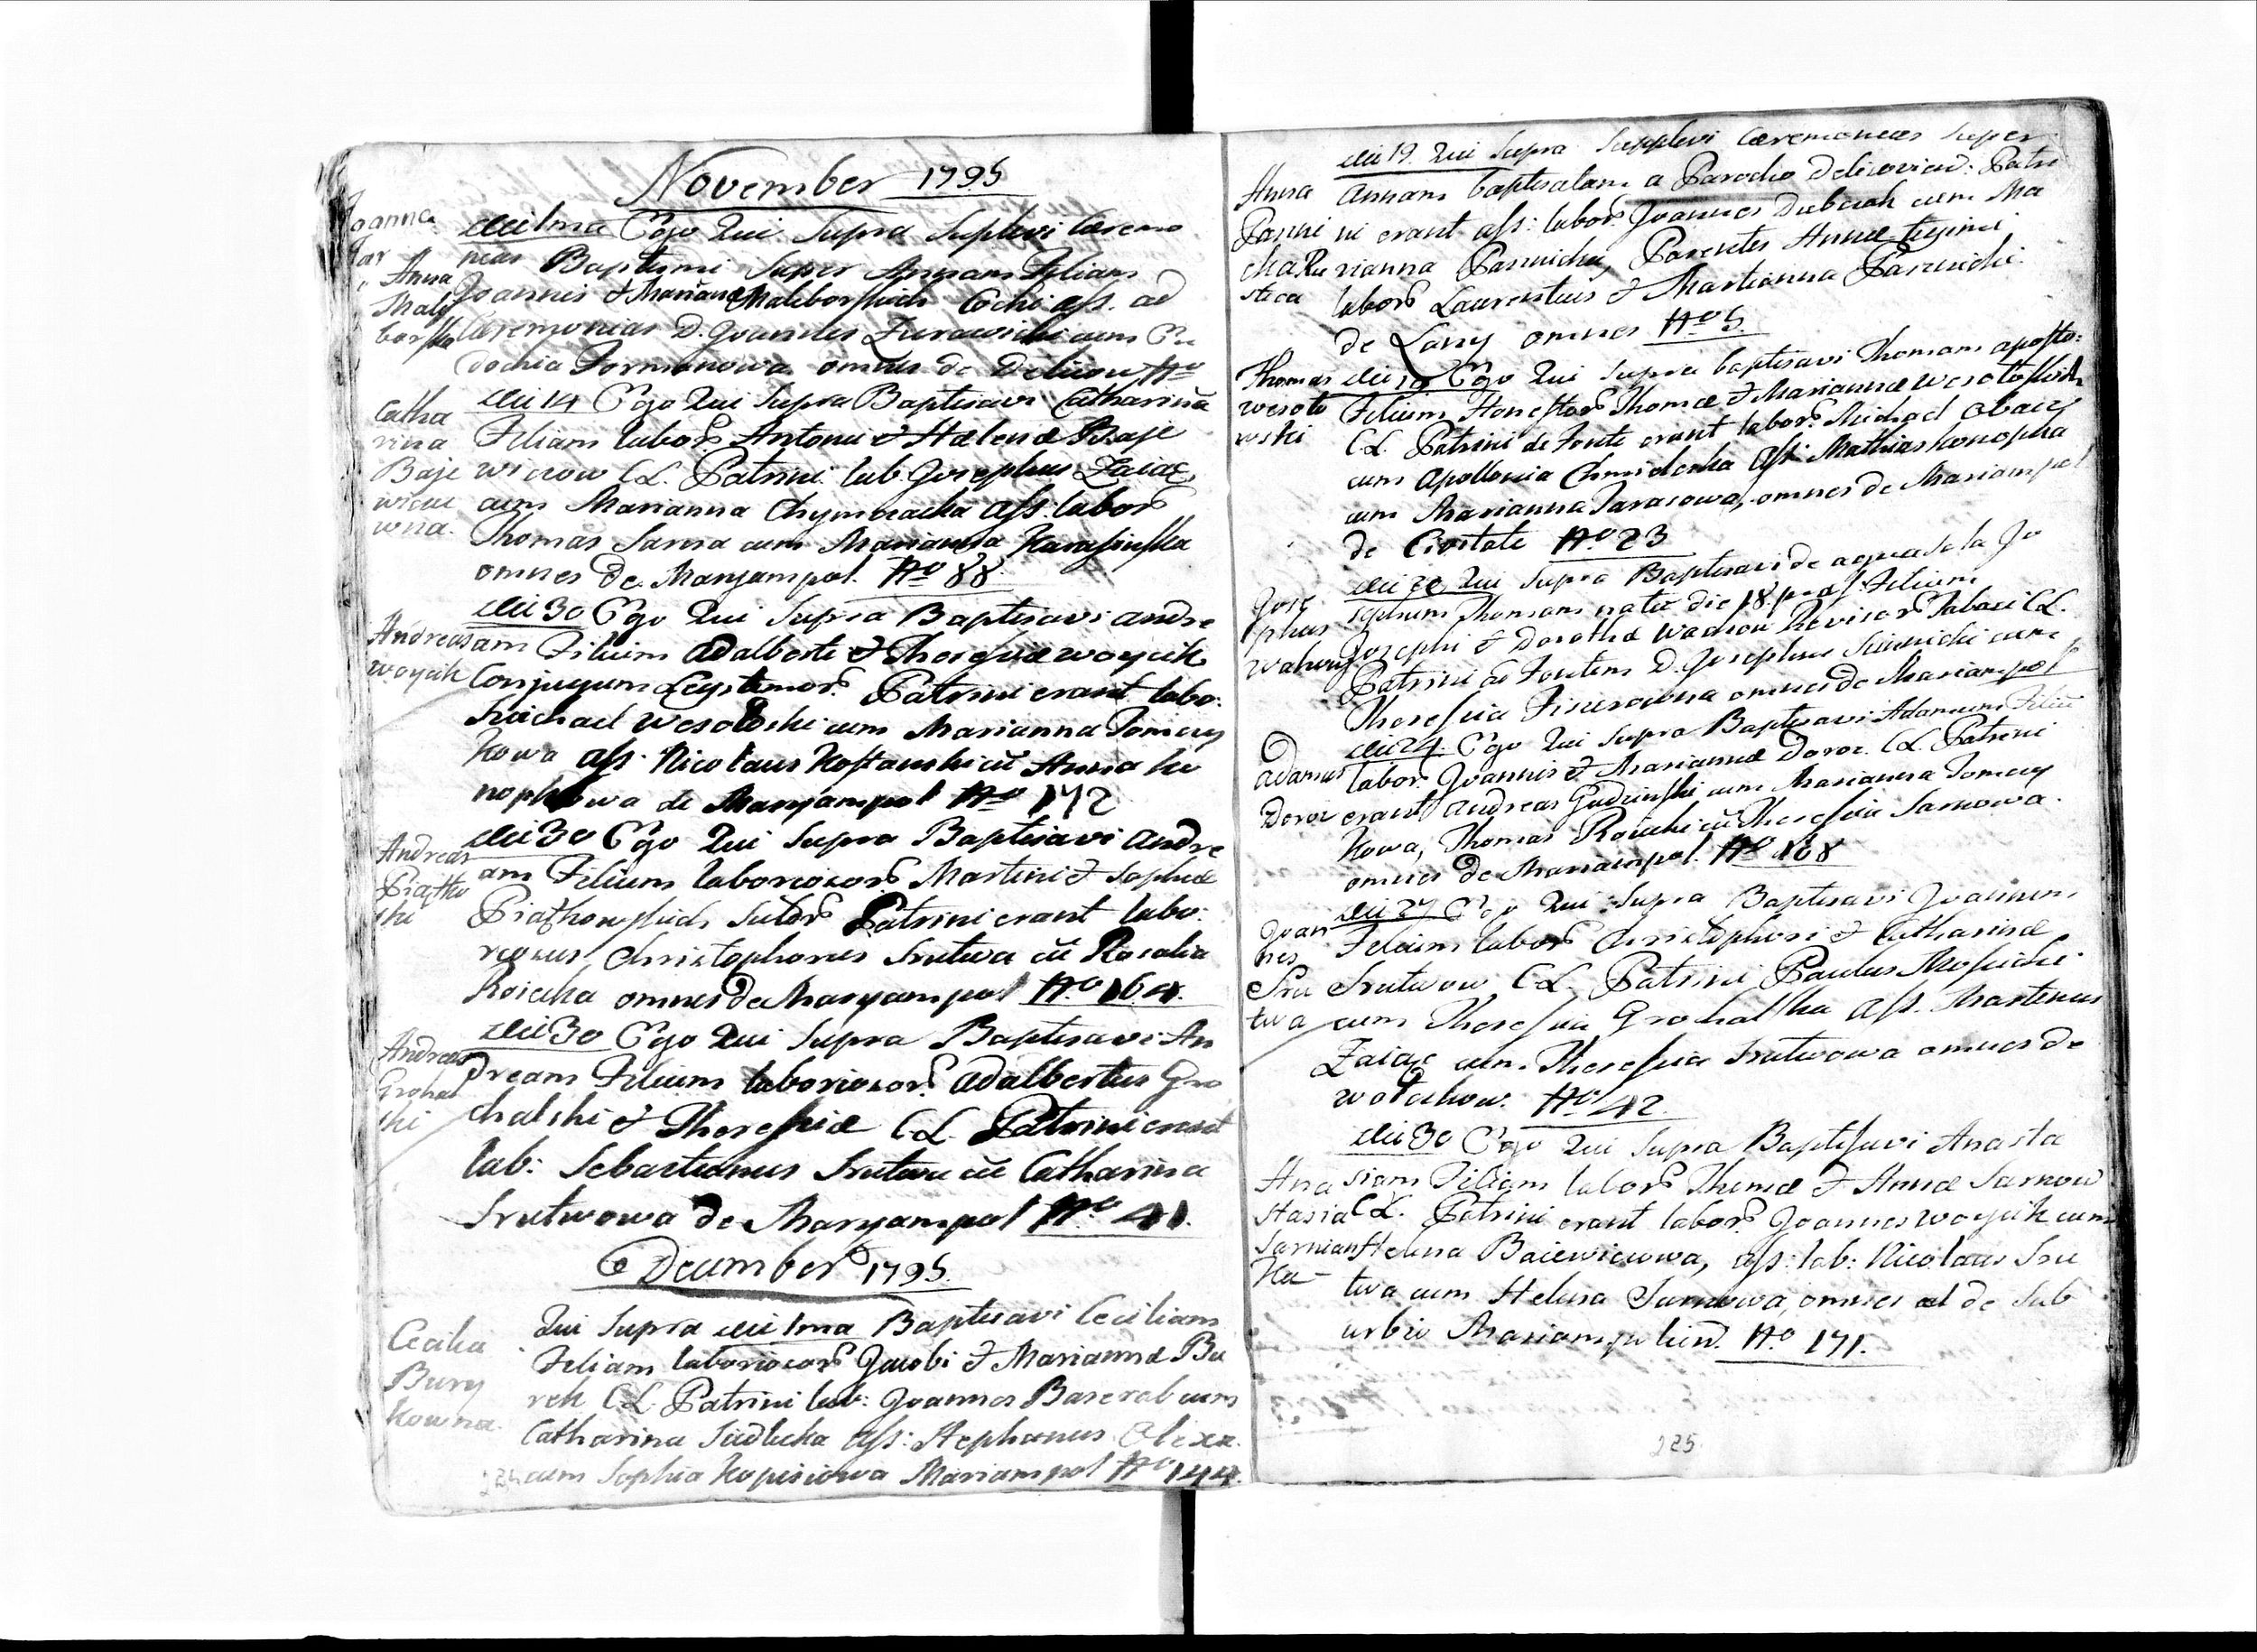 November 1795
Joanna
Jar
Anna
Maly
borska
die 1ma Ego Qui Supra Suplevi Cæremo
nias Baptismi Super Annam Filiam
Joannis & Marianæ Maliborskich Cochi ass. ad
Cæremonias D. Joannes Zurawski cum Eu
dochia Formanowa omnes de Delieow No
Catha
rina
Baje
wicow
wna.
die 14 Ego Qui Supra Baptisavi Catharinã
Filiam labor: Antonii & Helenæ Baje
wicow C.L. Patrini lab. Josephus Zaiac
cum Marianna Chymczacka ass: labor
Thomas Sarna cum Marianna Karasinska
omnes de Maryampol. No 88.
Andreas
Woycik
die 30 Ego Qui Supra Baptisavi Andre
am Filium Adalberti & Theresiæ Woycik
Conjugum Legitimor: Patrini erant labo:
Michael Wesołoski cum Marianna Tomczy
kowa ass. Nicolaus Kostanski cũ Anna Ko
nopkowa de Maryampol No 172
Andreas
Piątko
ski
die 30 Ego Qui Supra Baptisavi Andre
am Filium laboriosor: Martini & Sophiæ
Piątkowskich Sutor: Patrini erant labo:
riosus Christophorus Srutwa cũ Rosalia
Roicka omnes de Maryampol No 164.
Andreas
Grohal
ski
die 30 Ego Qui Supra Baptisavi An
dream Filium laboriosor: Adalbertus Gro
chalski & Theresiæ C.L. Patrini erant
lab: Sebastianus Srutwa cũ Catharina
Srutwowa de Maryampol No 41.
December 1795.
Cecilia
Bury
kowna.
Qui Supra die 1ma Baptisavi Ceciliam
Filiam laboriosor: Jacobi & Mariannæ Bu
rek C.L. Patrini lab: Joannes Baserab cum
Catharina Siedlecka ass: Stephanus Olexa.
cum Sophia Kopisiowa Mariampol No 144.
224
Anna
Pasni
die 19. Qui Supra Supplevi Cæremonias Super
Annam baptisatam a Parocho Deliovien: Patri
ni erant ass: labor. Joannes Dubczak cum Ma
rianna Pasnicka, Parentes Annæ legimi
labor: Laurentius & Marianna Pasnicki
de Lany omnes No 5.
Thomas
Wesoło
wski
die 19 Ego Qui Supra baptisavi Thomam aposto:
Filium Honestor: Thomæ & Mariannæ Wesołoskich
C.L. Patrini de Fonte erant labor: Michael
cum Apollonia Chmielecka Ass: Mathias Konopka
cum Marianna Tarasowa, omnes de Mariampol
de Civitate No 23
Jose
phus
die 20 Qui Supra Baptisavi de aqua sola Jo
sephum Thomam natu die 18. Filium
Josephi & Dorothæ Revisor: Tabaci C.L.
Patrini ad Fontem D. Josephus cum
Theressia omnes de Mariampol
Adamus
Doroz
die 24. Ego Qui Supra Baptisavi Adamum Filiũ
labor: Joannis & Mariannæ Doroz. C.L. Patrini
erant Andreas Gudzinski cum Marianna Tomczy
kowa, Thomas Roicki cũ Theressia Sarnowa.
omnes de Mariampol. No 168
Joan
nes
Sru
twa
die 27 Ego Qui Supra Baptisavi Joannem
Filium labor: Christophori & Catharinæ
Srutwow C.L. Patrini Paulus
cum Theressia Grohalska Ass. Martinus
Zaiac cum Theressia Srutwowa omnes de
Wołczkow. No 42
Ana
stasia
Sarnian
ka
die 30 Ego Qui Supra Baptisavi Anasta
siam Filiam labor: Thomæ & Annæ Sarnow
C.L. Patrini erant labor: Joannes Woycik cum
Helena Baiewiczowa, ass: lab: Nicolaus Sru
twa cum Helena Sarnowa, omnes de Sub
urbio Mariampolien. No 171.
225